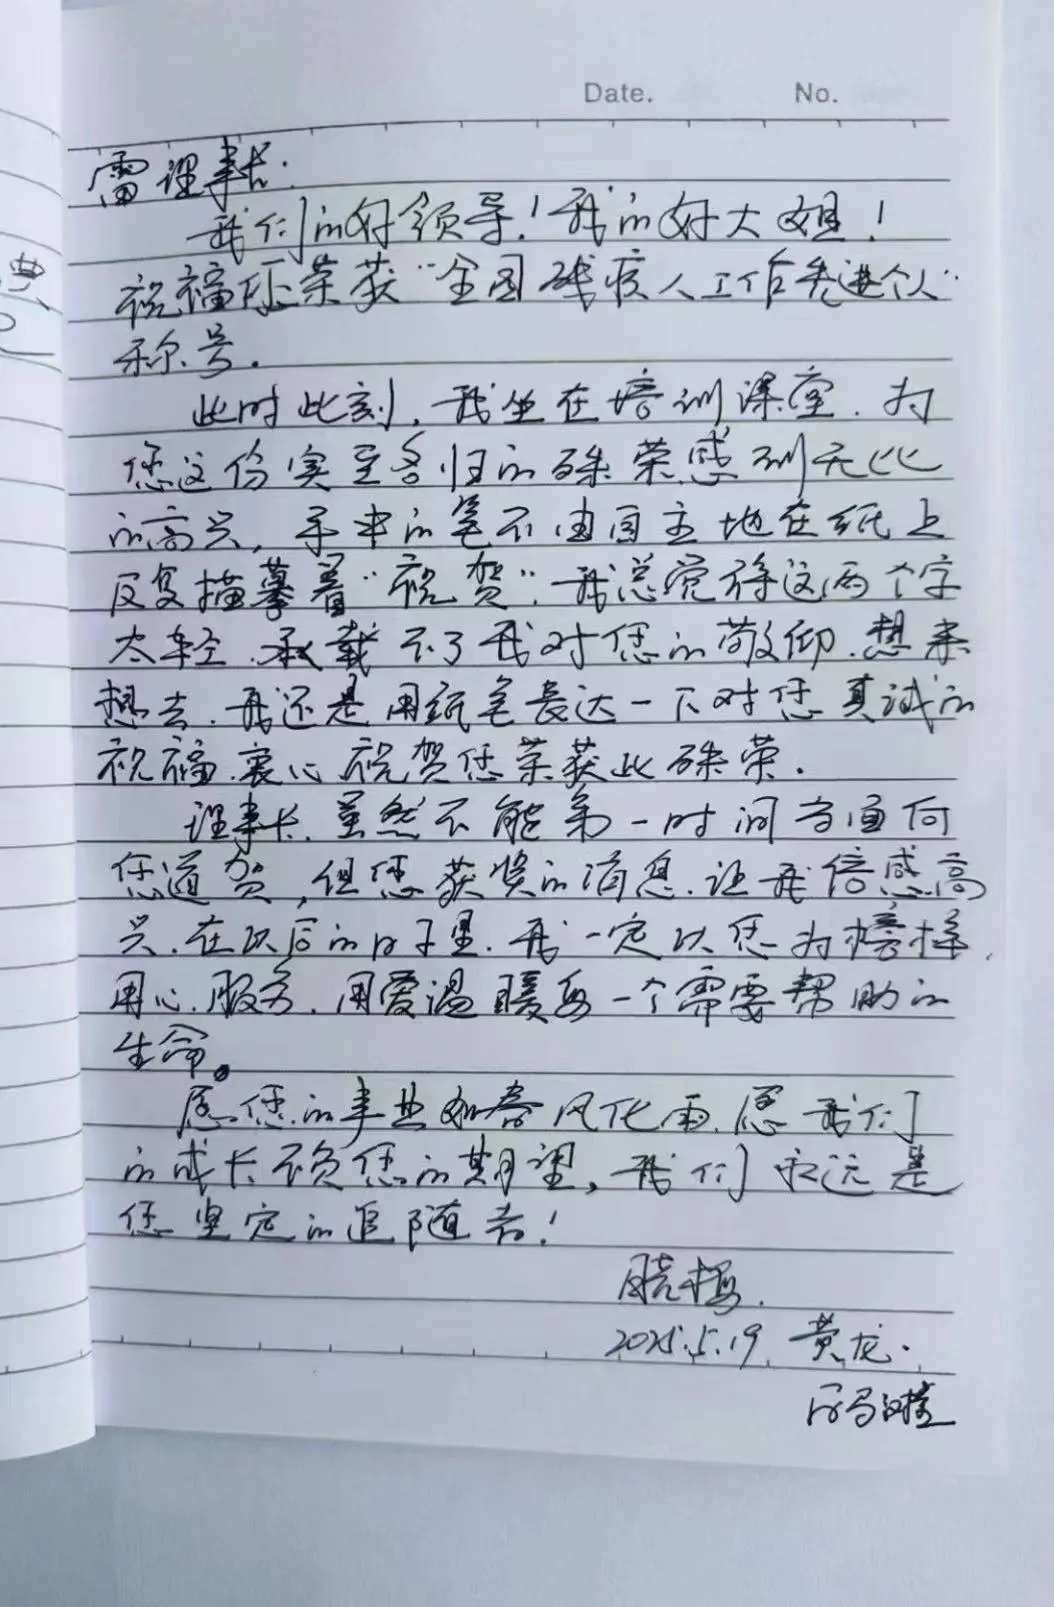 Date. No.
雷理事长.
我们的好领导！我的好大姐！
祝福您荣获“全国残疾人工作先进个人”
称号.
此时此刻,我坐在培训课堂.为
您这份实至名归的殊荣感到无比
的高兴,手中的笔不由自主地在纸上
反复描摹着“祝贺”.我总觉得这两个字
太轻.承载不了我对您的敬仰.想来
想去.我还是用纸笔表达一下对您真诚的
祝福.衷心祝贺您荣获此殊荣.
理事长.虽然不能第一时间当面向
您道贺,但您获奖的消息.让我倍感高
兴.在以后的日子里.我一定以您为榜样.
用心.服务.用爱温暖每一个需要帮助的
生命。
愿您的事业如春风化雨.愿我们
的成长不负您的期望,我们永远是
您坚定的追随者！
晓梅.
2025.5.19 黄龙.
典